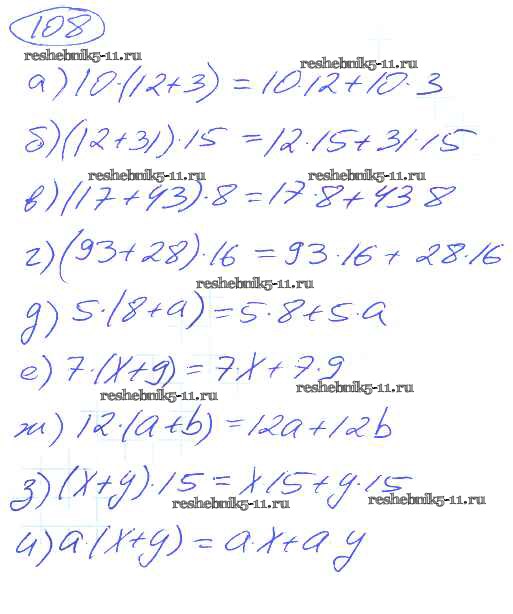 108
reshebnik5-11.ru
reshebnik5-11.ru
а) 10·(12+3) = 10·12+10·3
б) (12+31)·15 = 12·15+31·15
reshebnik5-11.ru
reshebnik5-11.ru
в) (17+43)·8 = 17·8+43 8
г) (93+28)·16 = 93·16+ 28·16
reshebnik5-11.ru
д) 5·(8+a) = 5·8+5·a
е) 7·(x+y) = 7·x+7·y
reshebnik5-11.ru
reshebnik5-11.ru
ж) 12·(a+b) = 12a+12b
з) (x+y)·15 = x 15+y·15
reshebnik5-11.ru
reshebnik5-11.ru
и) a·(x+y) = a·x+a y